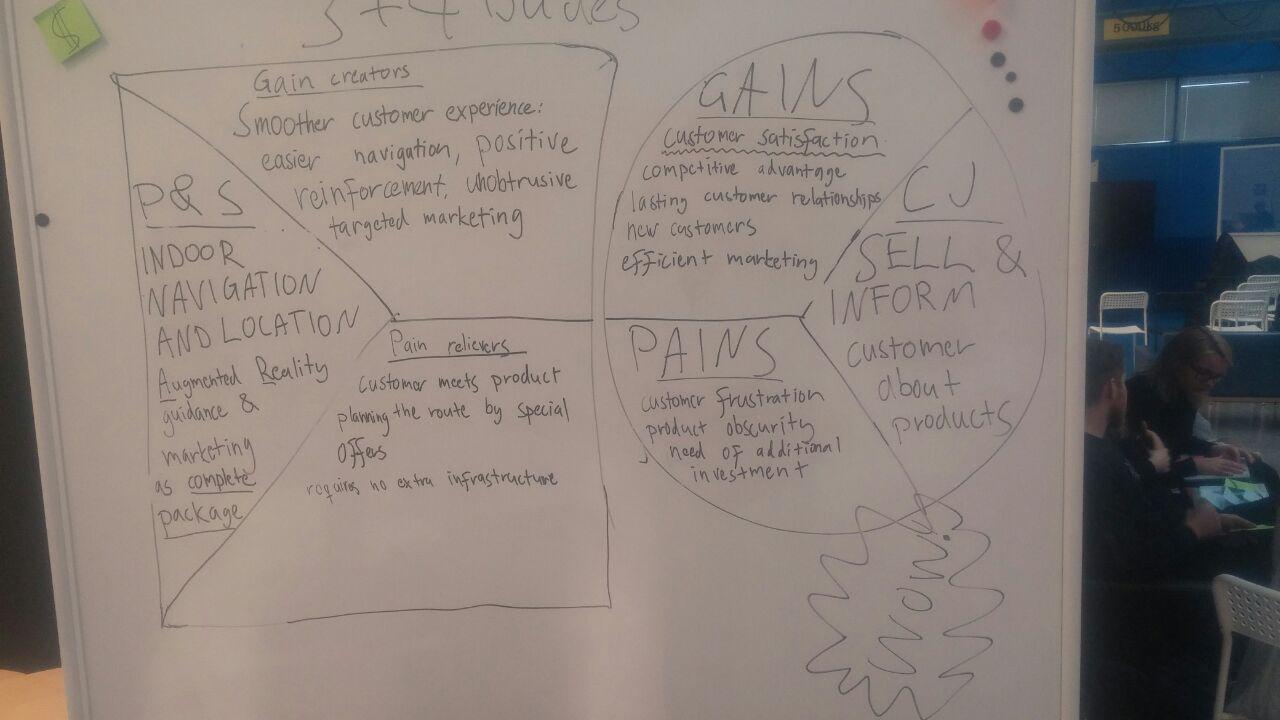 $
Gain creators
Smoother customer experience:
easier navigation, positive
reinforcement, unobtrusive
targeted marketing
P&S
INDOOR
NAVIGATION
AND LOCATION
Augmented Reality
guidance &
marketing
as complete
package
Pain relievers
Customer meets product
planning the route by special
offers
requires no extra infrastructure
GAINS
customer satisfaction
competitive advantage
lasting customer relationships
new customers
efficient marketing
CJ
SELL &
INFORM
customer
about
products
PAINS
customer frustration
product obscurity
need of additional
investment
WOW!